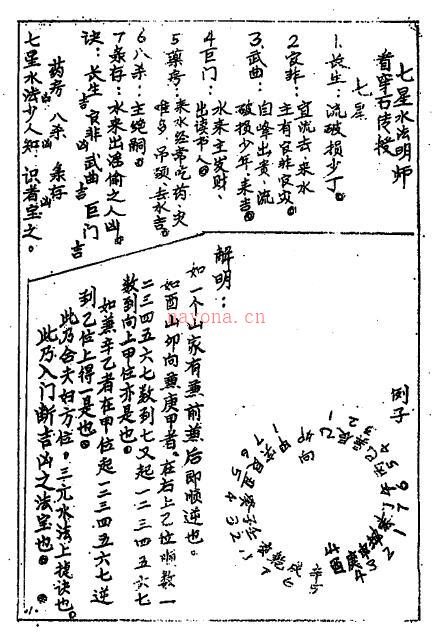 七星水法明师
看穿石传授
七星
1.长生:流破损少丁。
2.官非:宜流去,来水
主有官非官灾。
3.武曲:自峰出贵,流
破损少年,来吉。
4.巨门:水来主发财、
出读书人。
5.药房:来水经常吃药,灾
难多,吊颈,去水吉。
6.八杀:主绝嗣。
7.条存:水来出淫偷之人凶。
诀:长生吉 官非凶 武曲吉 巨门吉
药房凶 八杀凶 条存凶
七星水法少人知。识者宝之。
解明:
如一个山家有兼前兼后即顺逆也。
如酉山卯向兼庚甲者。在右上乙位顺数一
二三四五六七数到七又起一二三四五六七
数到向上甲位亦是也。
如兼辛乙者在甲位起一二三四五六七逆
到乙位上得一是也。
此乃合夫妇方位,三元水法上捷诀也。
此乃入门断吉凶之法宝也。
例子
卯向
酉山
nayona.cn